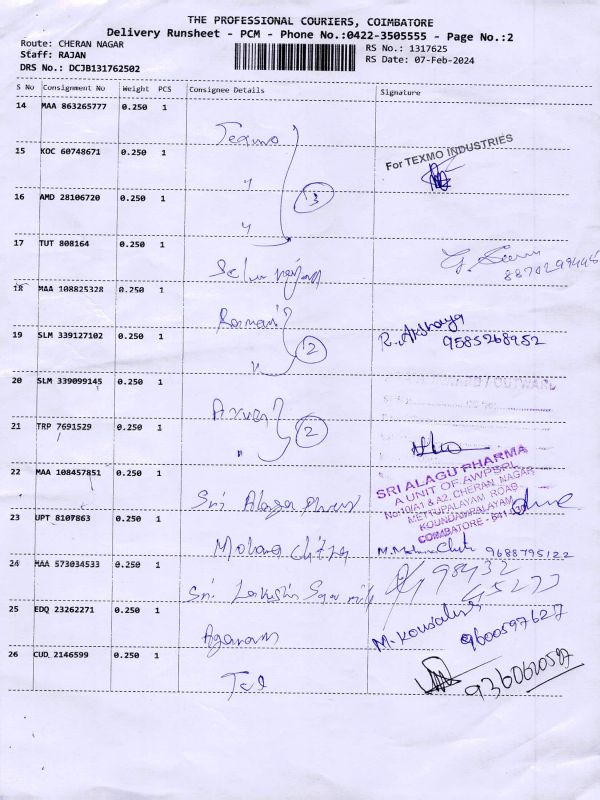 THE PROFESSIONAL COURIERS, COIMBATORE
Delivery Runsheet - PCM - Phone No.:0422-3505555 - Page No.:2
Route: CHERAN NAGAR
RS No.: 1317625
Staff: RAJAN
RS Date: 07-Feb-2024
DRS No.: DCJB131762502
S No Consignment No Weight PCS Consignee Details Signature
14 MAA 863265777 0.250 1
Texmo
For TEXMO INDUSTRIES
15 KOC 60748671 0.250 1
"
3
16 AMD 28106720 0.250 1
"
17 TUT 808164 0.250 1
8870299448
18 MAA 108825328 0.250 1
Ramani
R. Akshaya
9585268952
19 SLM 339127102 0.250 1
"
2
20 SLM 339099145 0.250 1
/ OUTWARD
21 TRP 7691529 0.250 1
"
2
22 MAA 108457851 0.250 1
Sri Alagu
SRI ALAGU PHARMA
A UNIT OF AWPSPL
No:10/A1 & A2, CHERAN NAGAR
METTUPALAYAM ROAD
KOUNDAMPALAYAM
COIMBATORE - 641
23 UPT 8107863 0.250 1
Mohana Chitra
9688795122
24 MAA 573034533 0.250 1
Sri
98432
45277
25 EDQ 23262271 0.250 1
Agaram
M. Kousalya
9600597627
26 CUD 2146599 0.250 1
9360620597